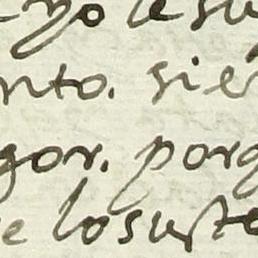 yo le su
nto. sie
gor. porq
e losuste